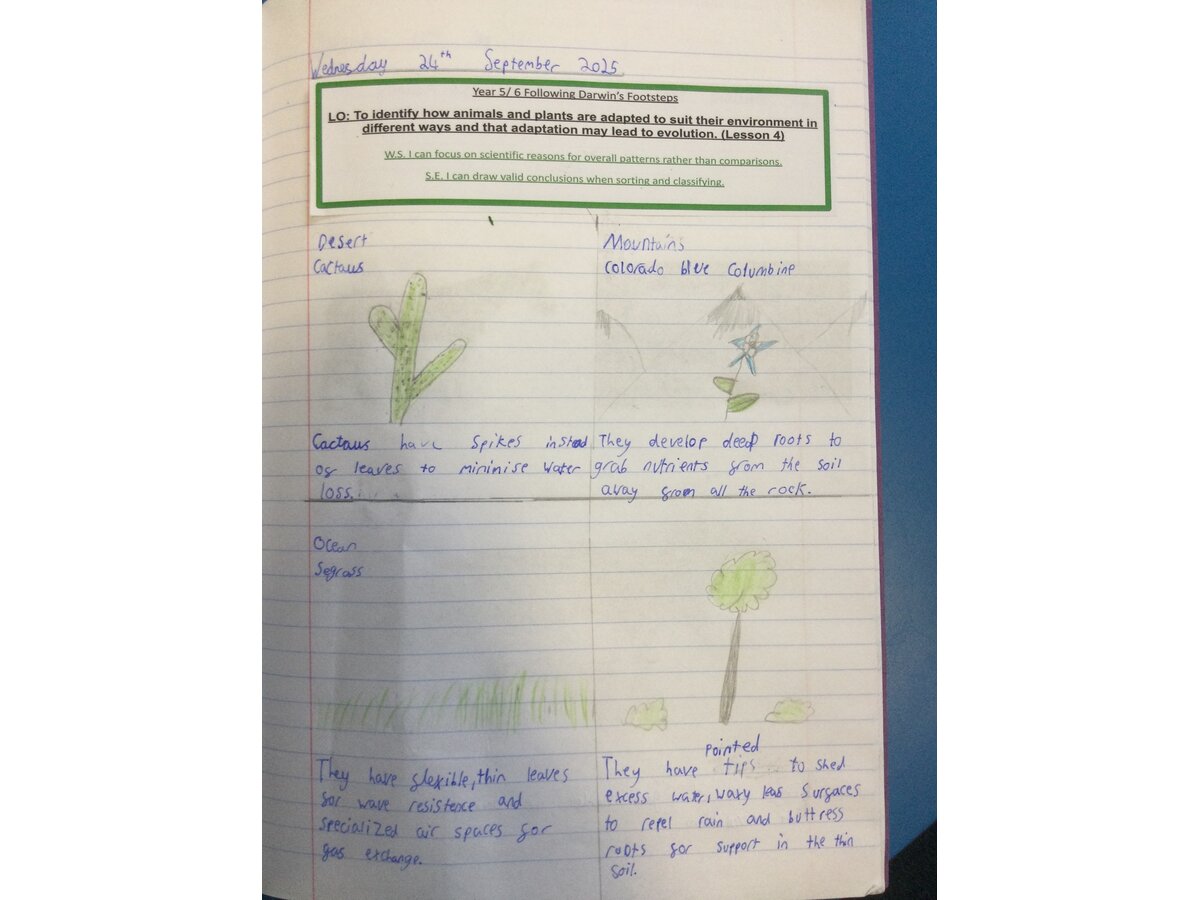 Wednesday 24th September 2025
Year 5/ 6 Following Darwin's Footsteps
LO: To identify how animals and plants are adapted to suit their environment in
different ways and that adaptation may lead to evolution. (Lesson 4)
W.S. I can focus on scientific reasons for overall patterns rather than comparisons.
S.E. I can draw valid conclusions when sorting and classifying.
Desert
Cactaus
Cactaus have spikes instead
of leaves to minimise water
loss.
Mountains
Colorado blue Columbine
They develop deep roots to
grab nutrients from the soil
away from all the rock.
Ocean
Segrass
They have flexible, thin leaves
for wave resistence and
specialized air spaces for
gas exchange.
pointed
They have tips to shed
excess water, waxy leaf surfaces
to repel rain and buttress
roots for support in the thin
soil.